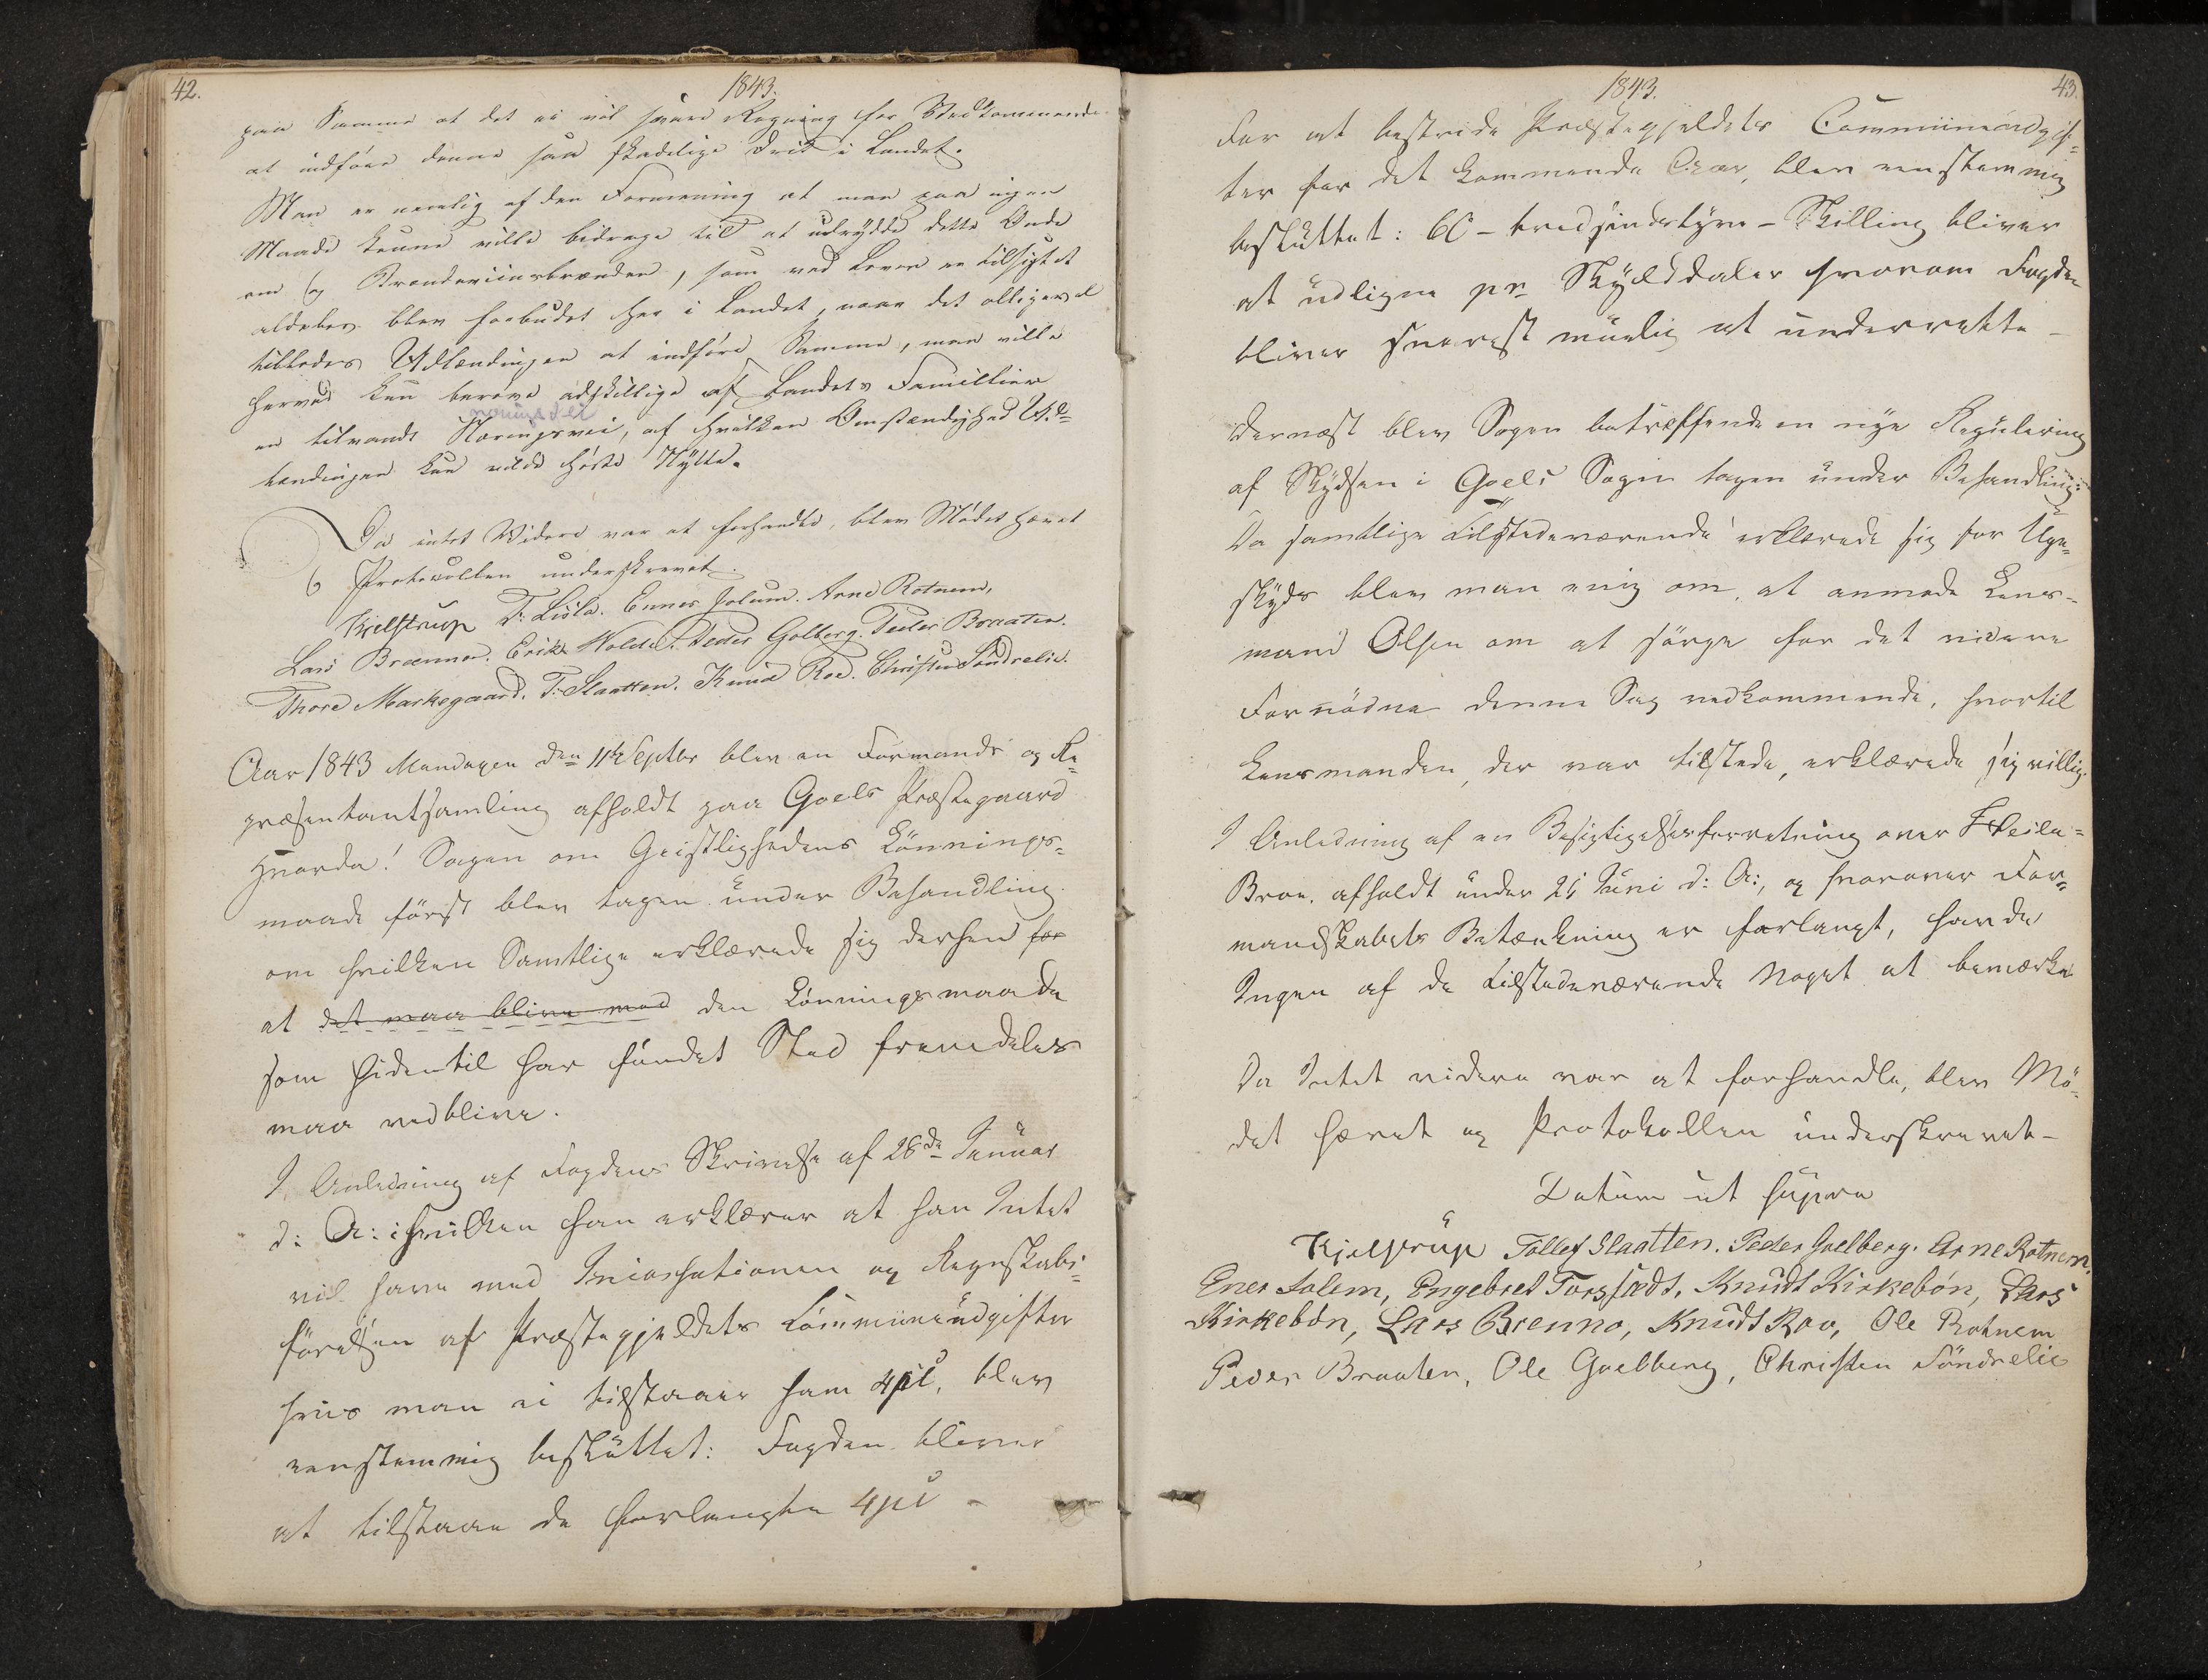 42.
1843.
paa Samme at det ei vil svare Regning for Vedkommende
at indføre denne saa skadelige Drik i Landet.
Man er nemlig af den Formening at man paa ingen
Maade kunne ville bidrage til at udrydde dette Onde
om og Brændeviinsbrænden, som ved Loven er tilsigtet
aldeles blev forbudet her i Landet, naar det alligevel
tillodes Udlændingen at indføre Samme, man ville
herved kun berøve adskillige af Landets Familier
næringsvei
en tilvandt Næringsvei, af hvilken Omstændighed Ud-
lændingen kun vilde høste Nytte.
Da intet Videre var at forhandle, blev Mødet hævet
og Protocollen underskrevet.
Kjelstrup T. Lisla. Enner Jolum. Arne Rotnem,
Lars Brænno. Erik Holde. Peder Golberg. Peder Braaten.
Thore Markegaard. T. Slaatten. Knud Roe. Christen Søndrelie.
Aar 1843 Mandagen den 11te Septbr blev en Formands og Re=
præsentantsamling afholdt paa Goels Præstegaard
Hvorda! Sagen om Geistlighedens Lønnings=
maade først blev tagen under Behandling
om hvilken Samtlige erklærede sig derhen for
at det maa blive med den Lønningsmaade
som hidentil har fundet Sted fremdeles
maa vedblive.
I Anledning af Fogdens Skrivelse af 26de Januar
d: A: i hvilken han erklærer at han Intet
vil have med Incassationen og Regnskabs=
førelsen af Præstegjeldets Communeudgifter
hvis man ei tilstaaer ham 4 pCt, blev
eenstemmig besluttet: Fogden bliver
at tilstaae de forlangte 4 pCt -
1843.
43.
For at bestride Præstegjeldets Communeudgif=
ter for det kommende Aar, blev eenstemmig
besluttet: 60 - tredsindstyve - Skilling bliver
at udligne pr Skylddaler hvorom Fogden
bliver snarest muelig at underrette -
Dernæst blev Sagen betræffende en nye Regulering
af Skydsen i Goels Sogn tagen under Behandling:
Da samtlige Tilstedeværende erklærede sig for Uge=
skyds blev man enig om, at anmode Lens-
mand Olsen om at sørge for det videre
Fornødne denne Sag vedkommende, hvortil
Lensmanden, der var tilstede, erklærede sig villig.
I Anledning af en Besigtigelsesforretning over Heslie=
Broe, afholdt under 21 Juni d: A:, og hvorover For=
mandskabets Betænkning er forlangt, havde
Ingen af de Tilstedeværende Noget at bemærke
Da Intet videre var at forhandle, blev Mö-
det hævet og Protokollen underskrevet -
Datum ut supra
Kjelstrup Tollef Slaatten. Peder Goelberg. Arne Rotnem.
Ener Jolem, Engebret Torsstedt, Knudt Kirkebøn, Lars
Kirkebøn, Lars Brenno, Knudt Roo, Ole Rotnem
Peder Braaten, Ole Goelberg, Christen Søndrelie